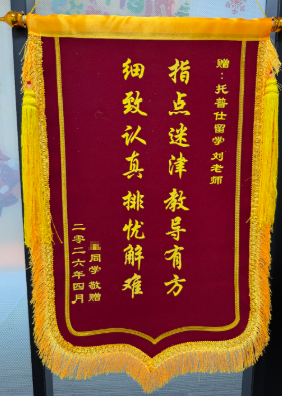 赠：托普仕留学 刘老师
指点迷津教导有方
细致认真排忧解难
同学 敬赠
二零二六年四月